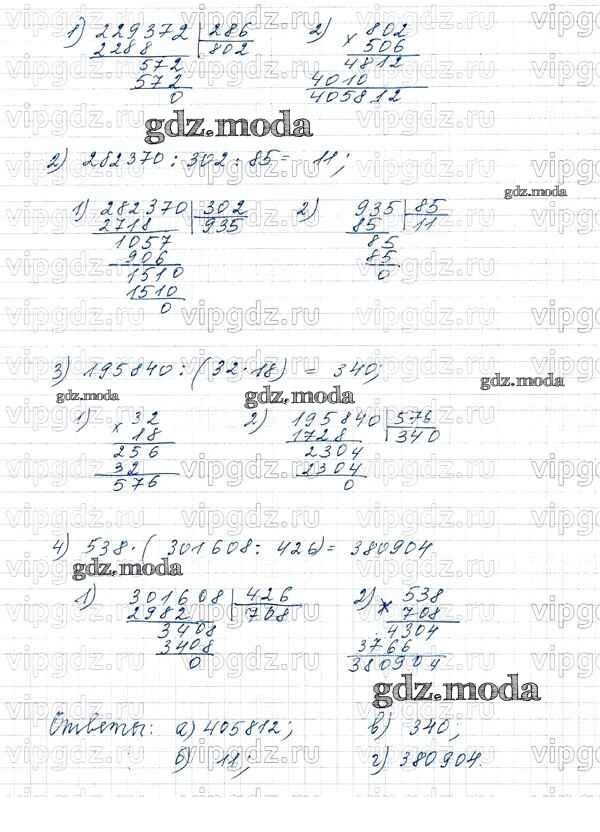 1) 229372 | 286 2) 802
2288 802 × 506
572 4812
572 4010
0 405812
gdz.moda
2) 282370 : 302 : 85 = 11;
gdz.moda
1) 282370 | 302 2) 935 | 85
2718 935 85 11
1057 85
906 85
1510 0
1510
0
3) 195840 : (32 · 18) = 340;
gdz.moda gdz.moda gdz.moda
1) 32 2) 195840 | 576
× 18 1728 340
256 2304
32 2304
576 0
4) 538 · ( 301608 : 426) = 380904
gdz.moda
1) 301608 | 426 2) 538
2982 708 × 708
3408 4304
3408 3766
0 380904
gdz.moda
Ответы: а) 405812; в) 340;
б) 11; г) 380904.
vipgdz.ru